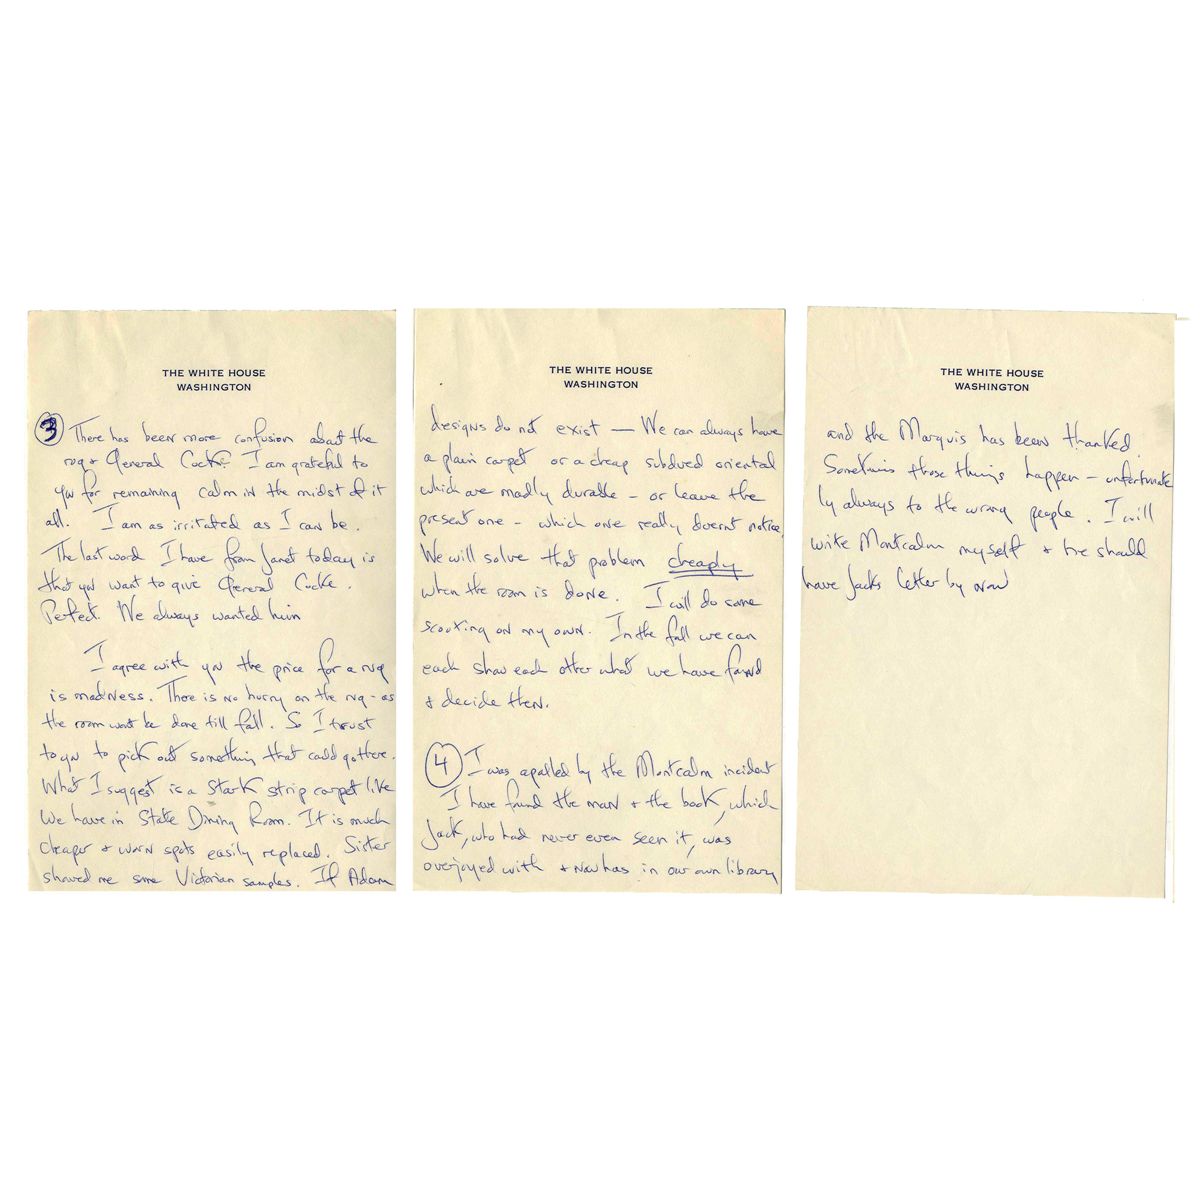 THE WHITE HOUSE
WASHINGTON
3 There has been more confusion about the
rug & General Cocke. I am grateful to
you for remaining calm in the midst of it
all. I am as irritated as I can be.
The last word I have from Janet today is
that you want to give General Cocke.
Perfect. We always wanted him
I agree with you the price for a rug
is madness. There is no hurry on the rug - as
the room wont be done till fall. So I trust
to you to pick out something that could go there.
What I suggest is a Stark strip carpet like
we have in State Dining Room. It is much
cheaper & worn spots easily replaced. Sister
showed me some Victorian samples. If Adam
THE WHITE HOUSE
WASHINGTON
designs do not exist — We can always have
a plain carpet or a cheap subdued oriental
which are madly durable - or leave the
present one - which one really doesnt notice.
We will solve that problem cheaply
when the room is done. I will do some
scouting on my own. In the fall we can
each show each other what we have found
& decide then.
4 I was apalled by the Montcalm incident
I have found the man & the book, which
Jack, who had never even seen it, was
overjoyed with & now has in our own library
THE WHITE HOUSE
WASHINGTON
and the Marquis has been thanked.
Sometimes those things happen - unfortunate
ly always to the wrong people. I will
write Montcalm myself & he should
have Jacks letter by now